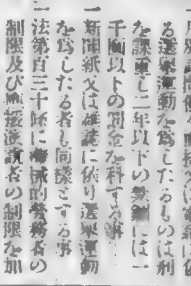 る選擧運動を爲したるものは刑
を課し二年以下の禁錮には一
千圓以下の罰金を科する事
一新聞紙又は雜誌に依り選擧運動
を爲したる者も同樣とする事
一法第百三十 に 的勞務者の
制限及び 演説者の制限を加